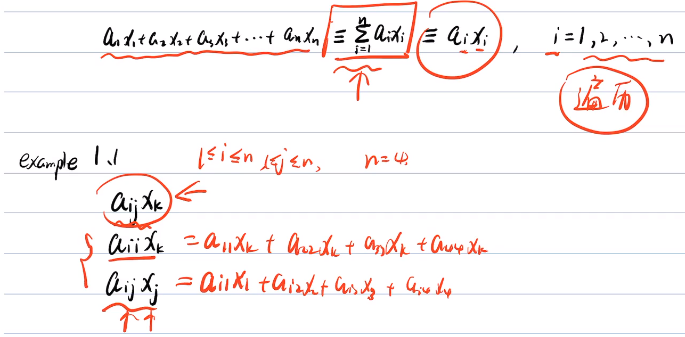 a₁x₁+a₂x₂+a₃x₃+⋯+aₙxₙ ≡ ∑ᵢ₌₁ⁿ aᵢxᵢ ≡ aᵢxᵢ , i=1,2,⋯,n
遍历
example 1.1 1≤i≤n 1≤j≤n, n=4.
aᵢⱼxₖ
aᵢᵢxₖ = a₁₁xₖ + a₂₂xₖ + a₃₃xₖ + a₄₄xₖ
aᵢⱼxⱼ = aᵢ₁x₁ + aᵢ₂x₂ + aᵢ₃x₃ + aᵢ₄x₄